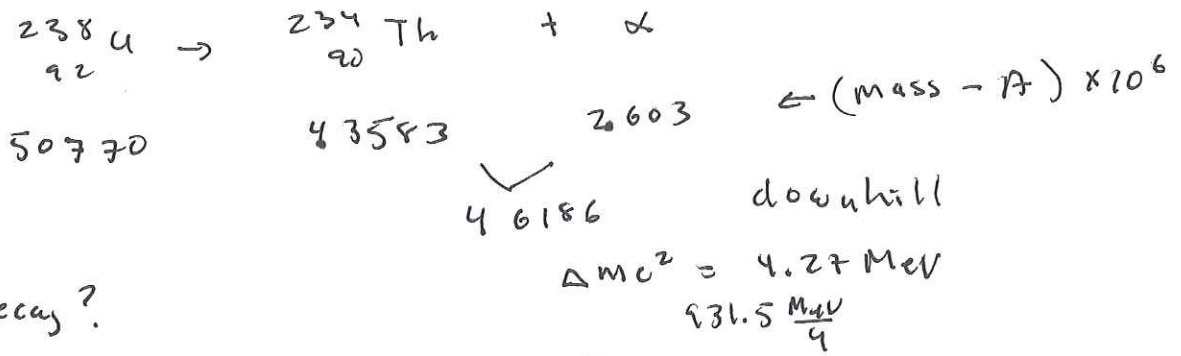 ²³⁸₉₂U → ²³⁴₉₀Th + α
50770 43583 2603 ← (mass - A) × 10⁶
46186
downhill
Δmc² = 4.27 MeV
931.5 MeV/u
ecay?